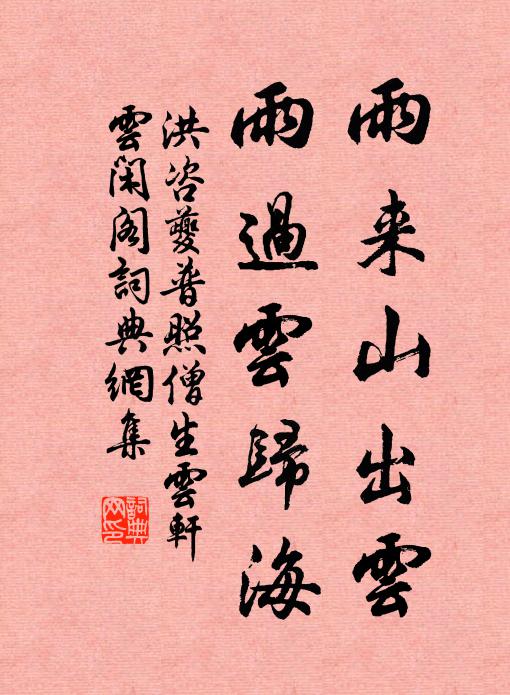 雨来山出雲
雨過雲歸海
洪咨夔普照僧生雲軒
雲闲阁詞典網集
詞典网印